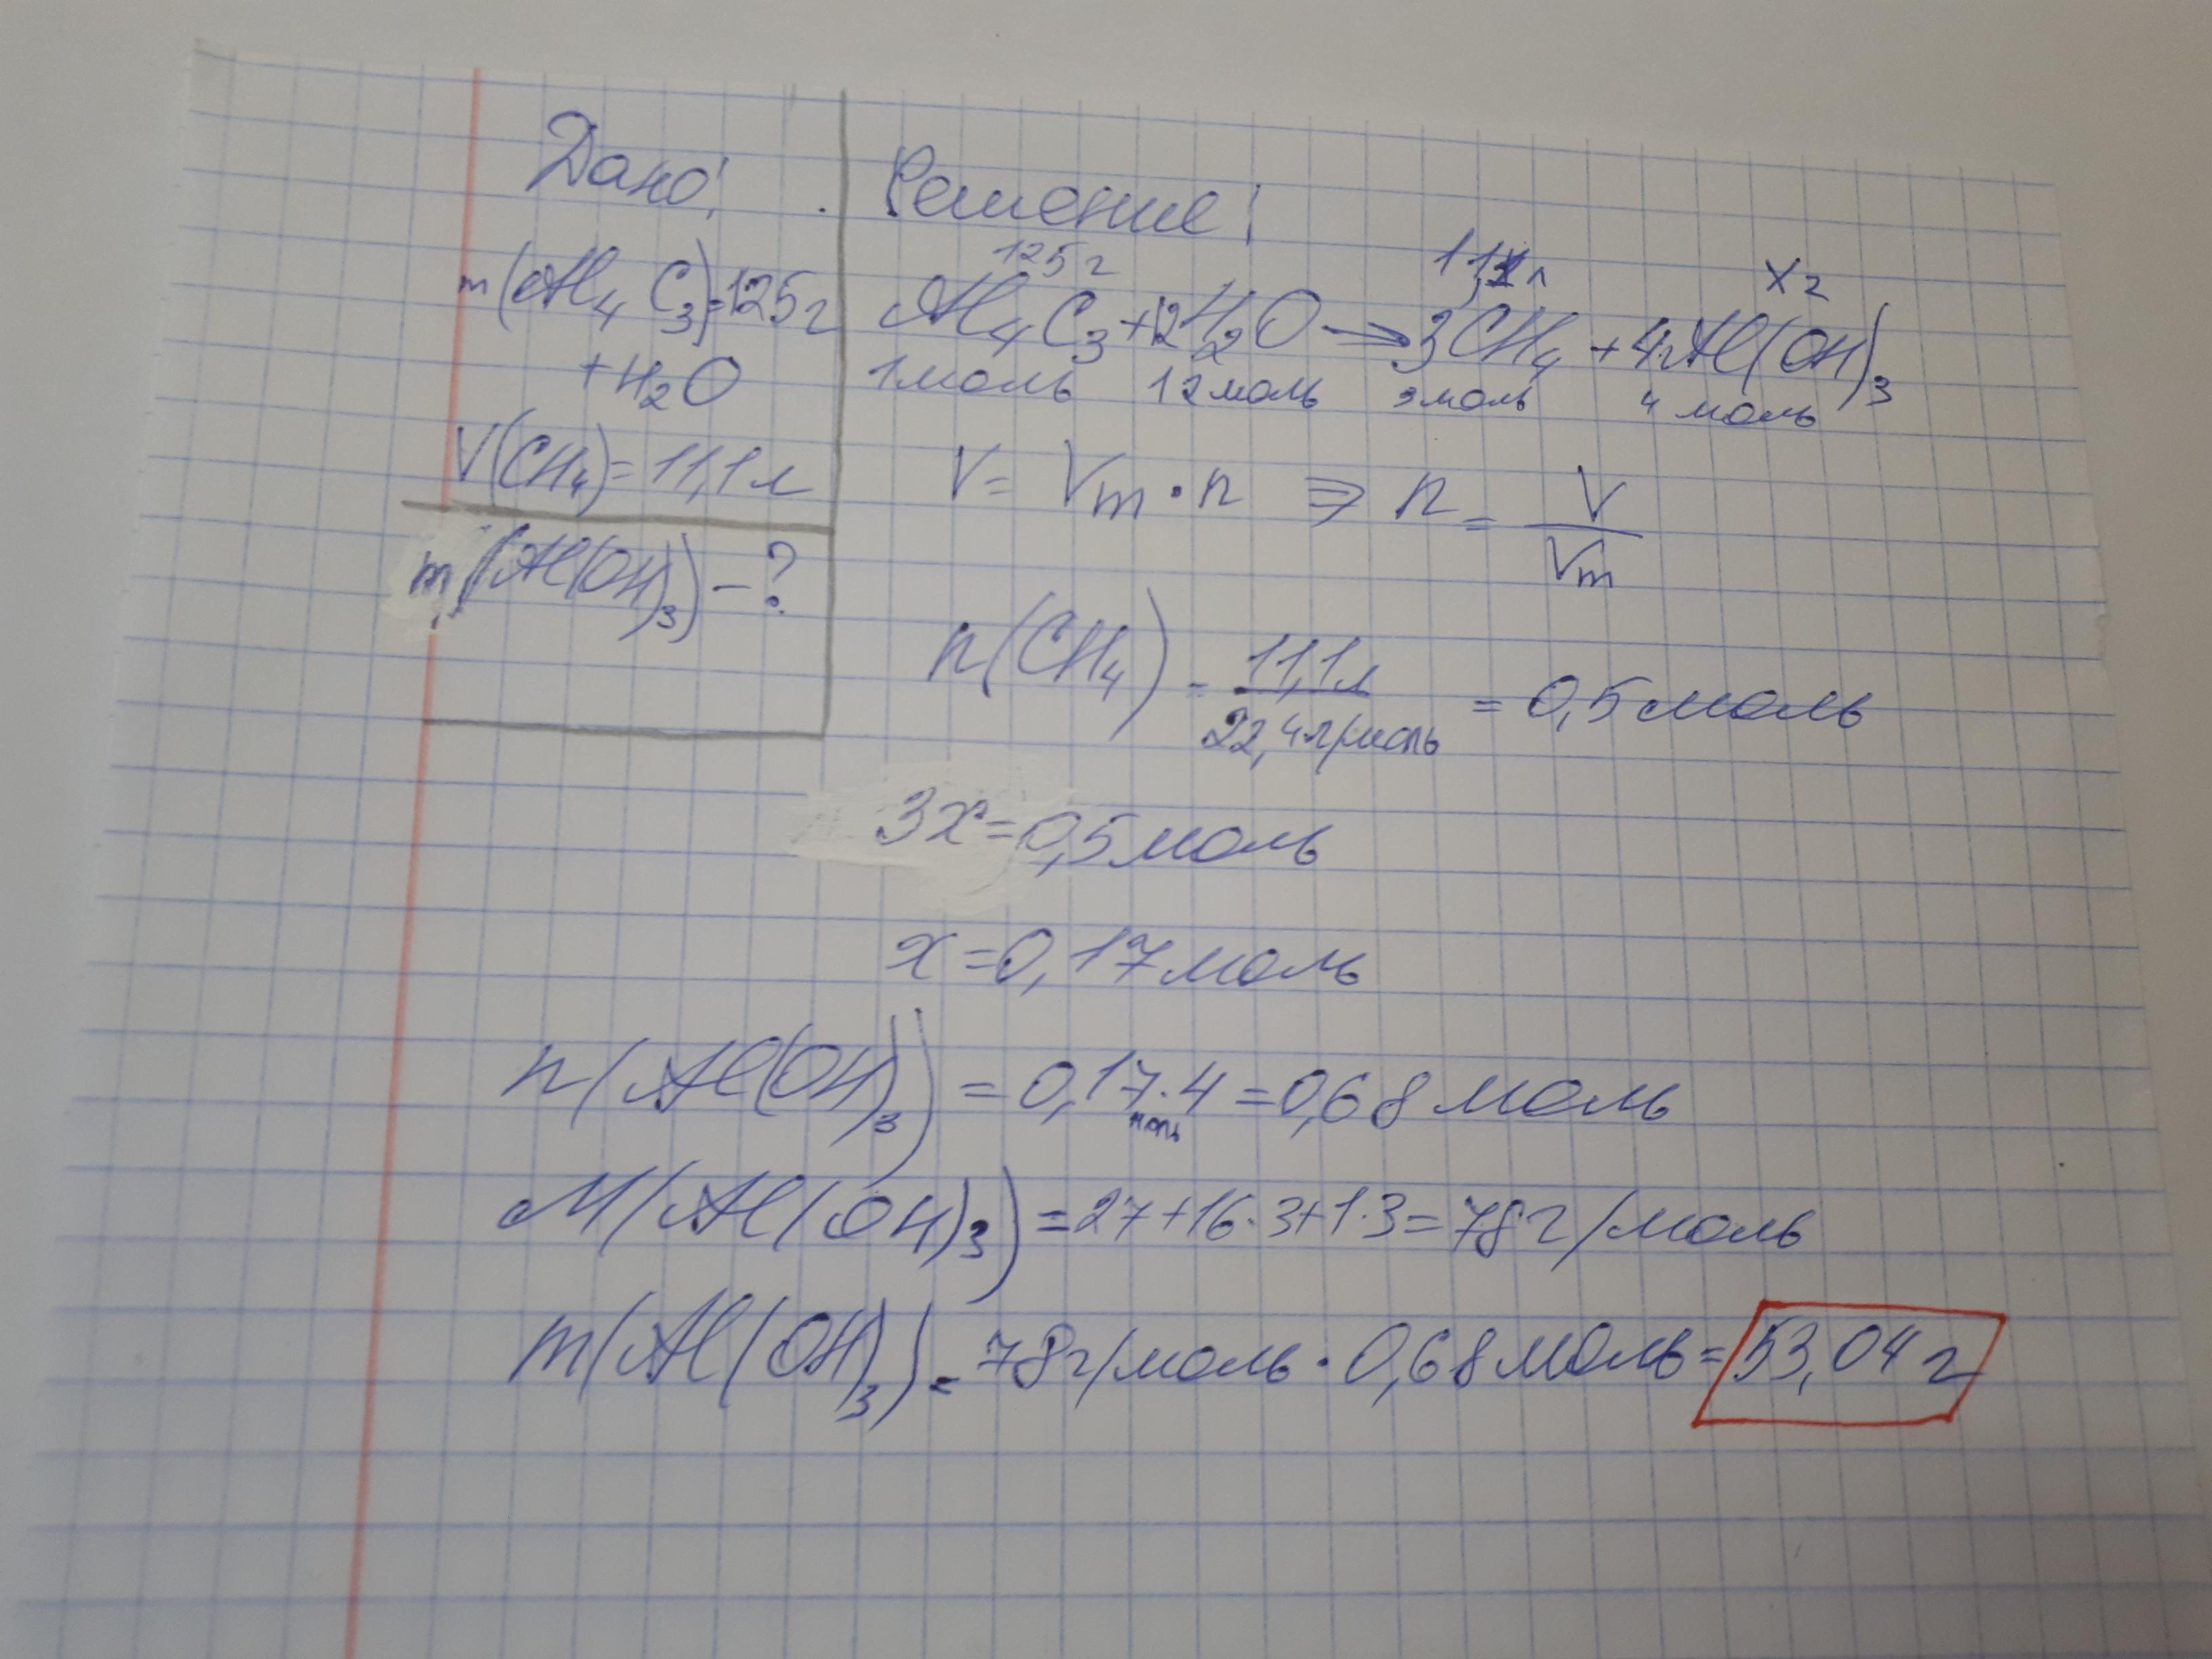 Дано:
m(Al₄C₃)=125г
+H₂O
V(CH₄)=11,1л
m(Al(OH)₃)-?
Решение:
125г 11,1л Xг
Al₄C₃+12H₂O→3CH₄+4Al(OH)₃
1моль 12моль 3моль 4 моль
V= Vm·n ⇒ n = V/Vm
n(CH₄) = 11,1л/22,4л/моль = 0,5моль
3x=0,5моль
x=0,17моль
n(Al(OH)₃) = 0,17моль·4=0,68моль
M(Al(OH)₃)=27+16·3+1·3=78г/моль
m(Al(OH)₃)=78г/моль·0,68моль=53,04г